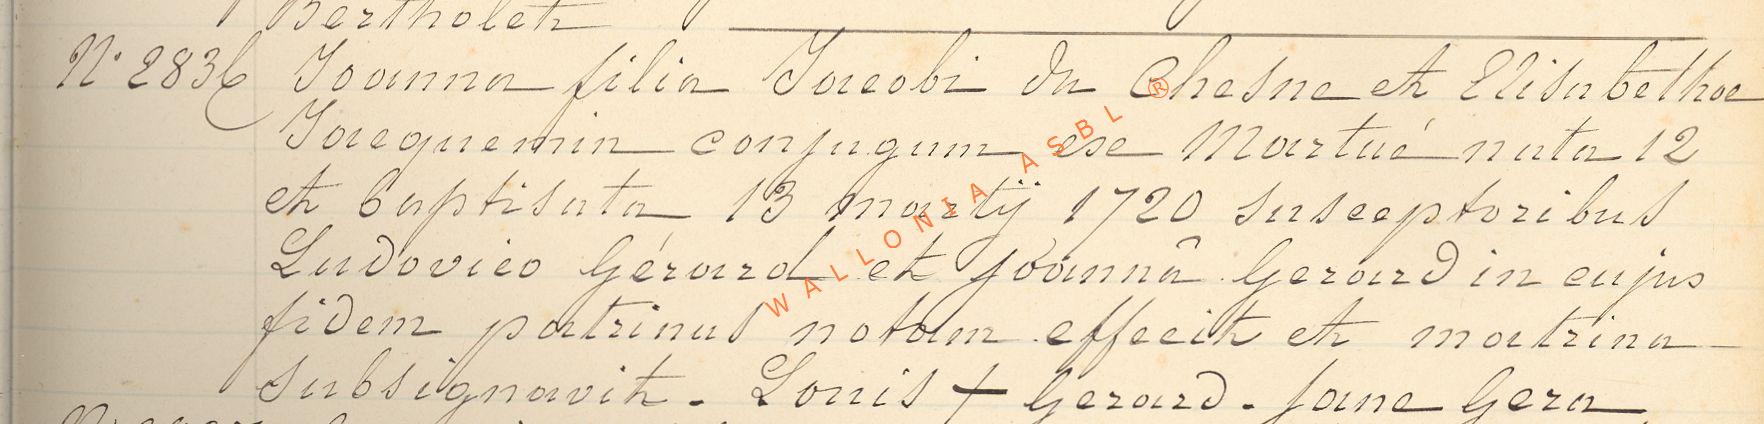 Bertholet
N° 2836 Joanna filia Jacobi du Chesne et Elisabethae
Jacquemin conjugum ex Martué nata 12
et baptisata 13 martij 1720 susceptoribus
Ludovico Gérard et Joannâ Gerard in cujus
fidem patrinus notam effecit et matrina
subsignavit. Louis + Gerard. Jane Gera
WALLONIA ASBL ®